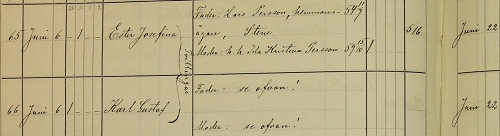 Fader: Lars Persson, hemmans- 54 11/4
65 Juni 6 - 1 - - Ester Josefina ägare, Stene 516 Juni 22
Moder: h. h. Ida Kristina Persson 59 15/10 1
Tvillingar
Fader: se ofvan!
66 Juni 6 1 - - - Karl Gustaf Juni 22
Moder: se ofvan!